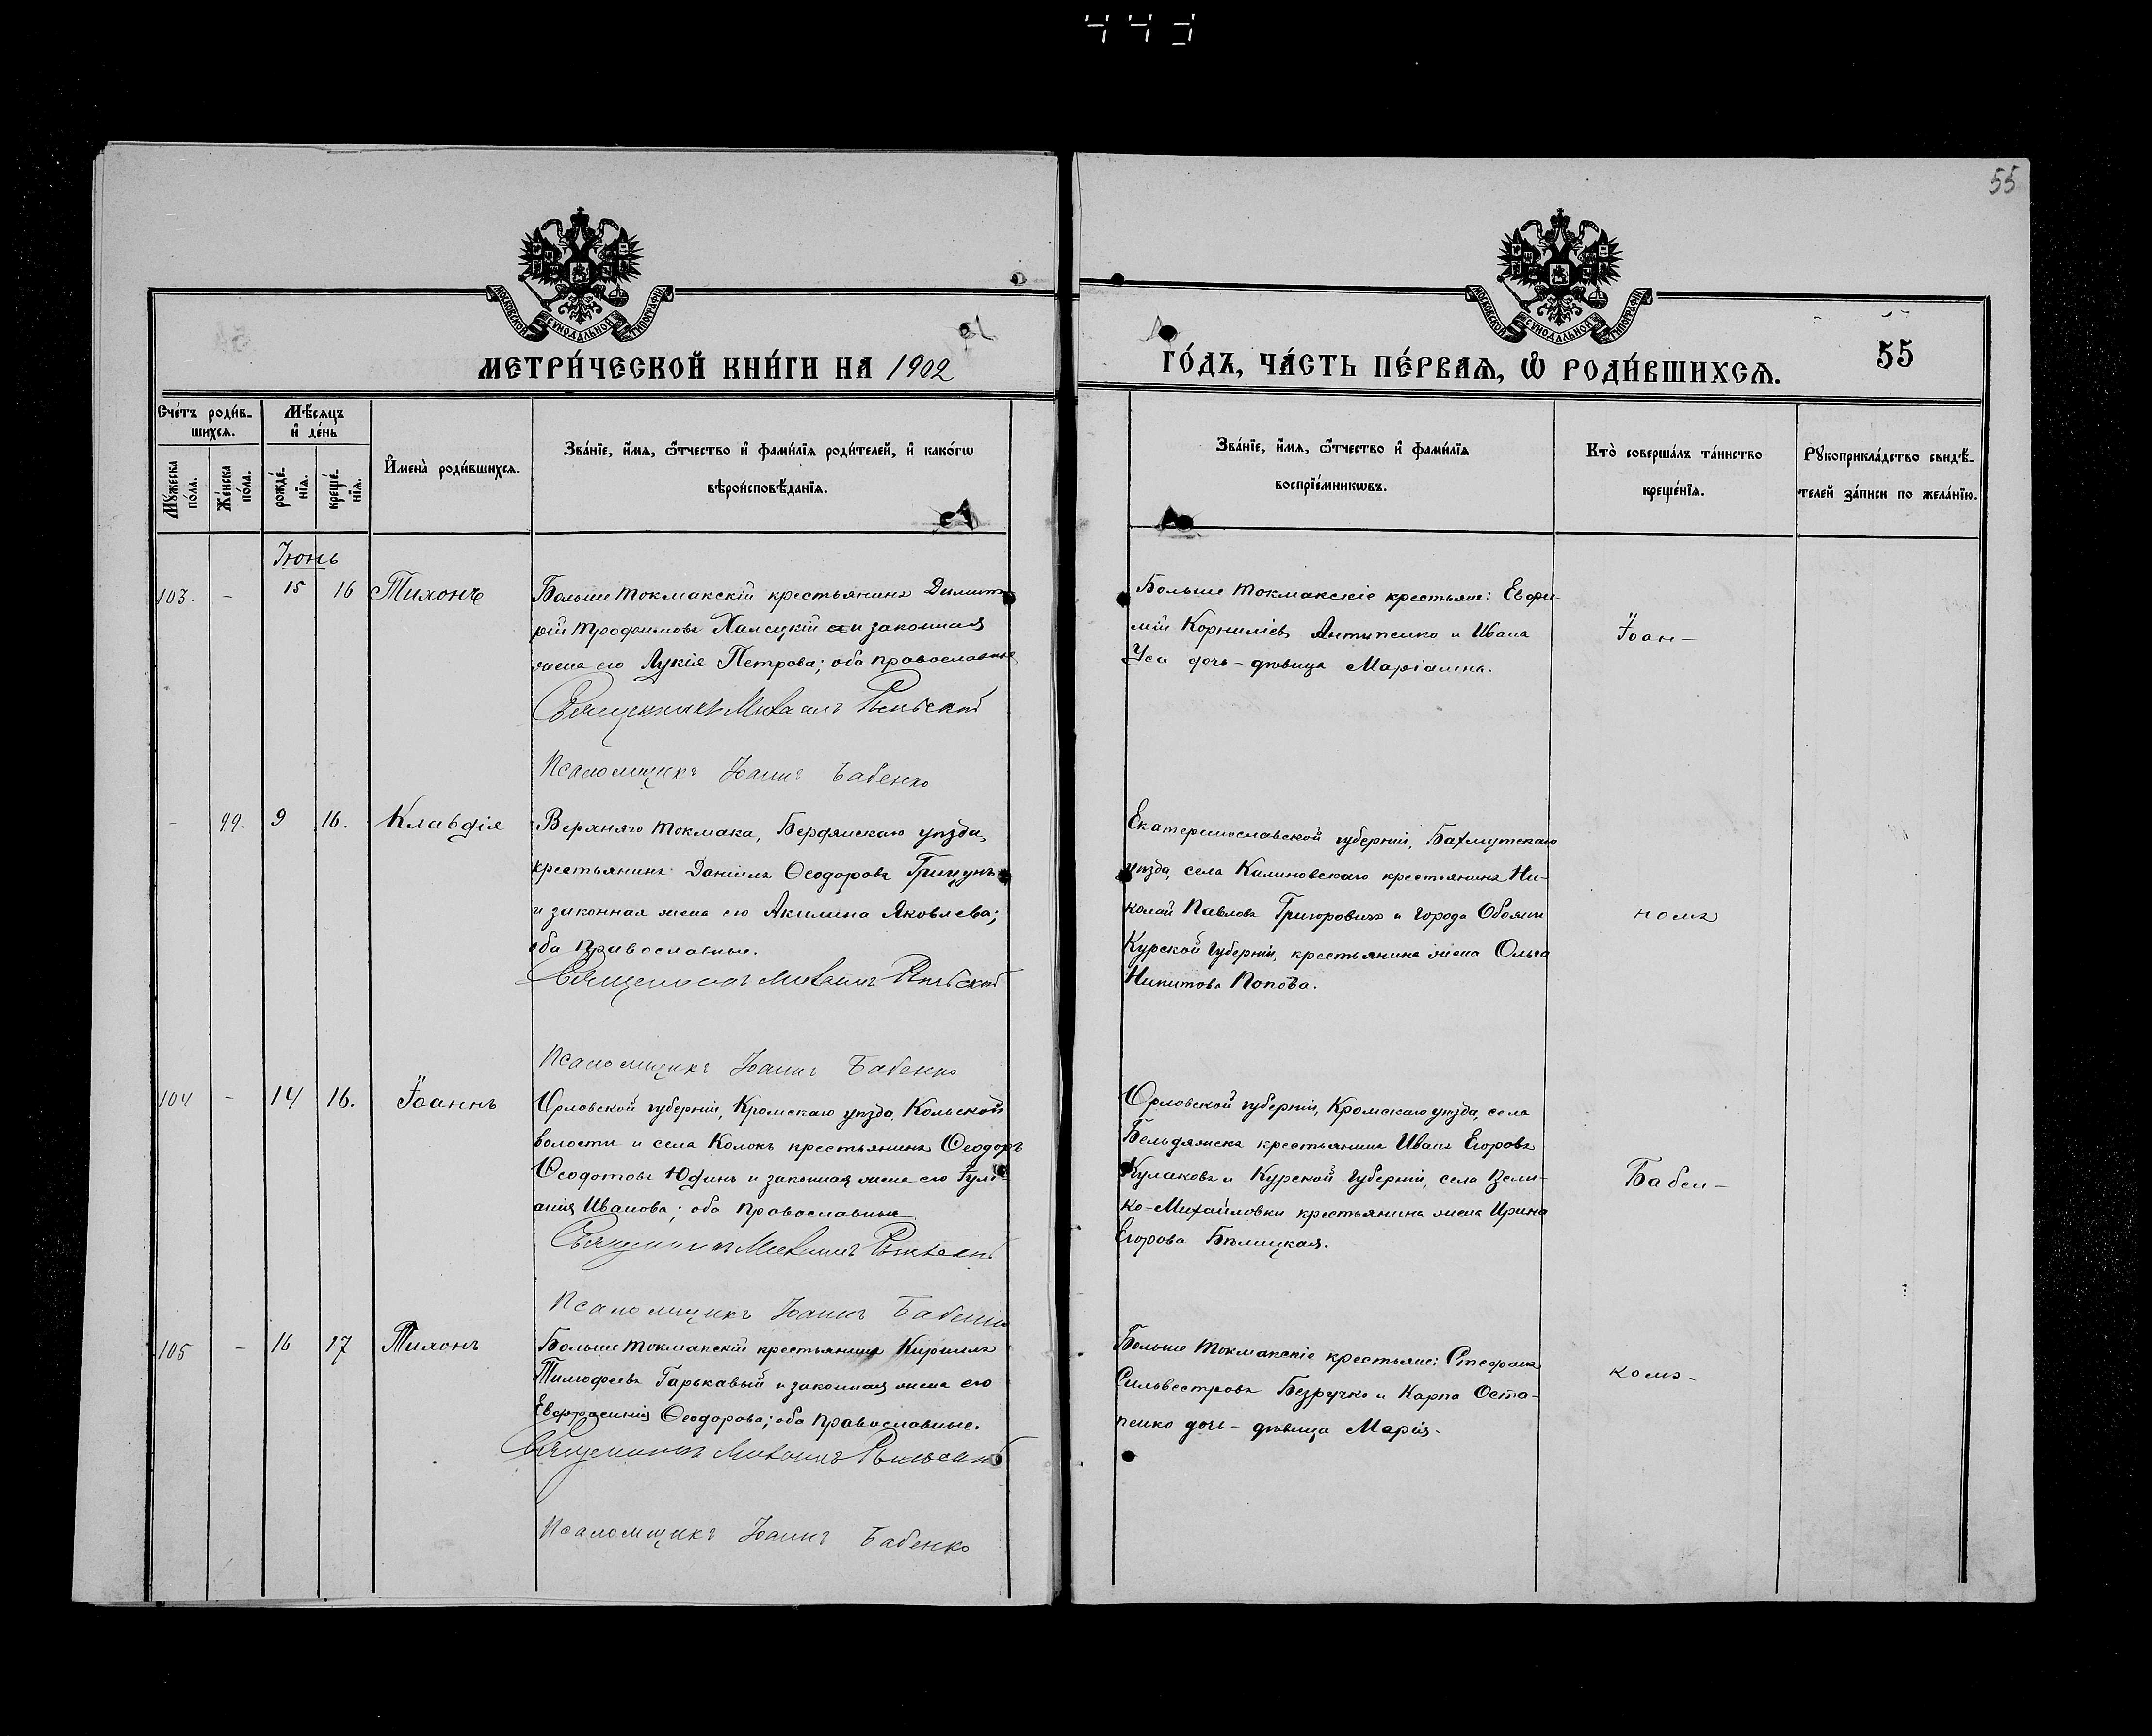 443
55
МОСКОВСКОЙ СѴНОДАЛЬНОЙ ТИПОГРАФІИ
МОСКОВСКОЙ СѴНОДАЛЬНОЙ ТИПОГРАФІИ
МЕТРИ́ЧЕСКОЙ КНИ́ГИ НА 1902
ГО́ДЪ, ЧА́СТЬ ПЕ́РВАѦ, Ѽ РОДИ́ВШИХСѦ.
55
Счє́тъ роди́в-
шихсѧ.
Мꙋ́жеска по́ла.
Же́нска по́ла.
Мѣ́сѧцъ
и҆ де́нь
рожде́-
нїѧ.
креще́-
нїѧ.
И҆мена̀ роди́вшихсѧ.
Зва́нїе, и҆́мѧ, ѻ҆́тчество и҆ фами́лїѧ роди́телей, и҆ како́гѡ
вѣроисповѣ́данїѧ.
Зва́нїе, и҆́мѧ, ѻ҆́тчество и҆ фами́лїѧ
воспрїе́мникѡвъ.
Кто̀ соверша́лъ та́инство
креще́нїѧ.
Рꙋкоприкла́дство свидѣ́-
телей за́писи по жела́нїю.
Іюнь
103. - 15 16 Тихонъ
Больше Токмакскій крестьянинъ Димит-
рій Трофимовъ Халецкій и законная
жена его Лукія Петрова; оба православные
Священникъ Михаилъ Рыльской
Псаломщикъ Іоаннъ Бабенко
Больше Токмакскіе крестьяне: Евфи-
мій Корниліевъ Антипенко и Ивана
Уса дочь - дѣвица Маріамна.
Іоан-
- 99. 9 16. Клавдія
Верхняго Токмака, Бердянскаго уѣзда,
крестьянинъ Даніилъ Ѳеодоровъ Грицунъ
и законная жена его Акилина Яковлева;
оба православные.
Священникъ Михаилъ Рыльской
Псаломщикъ Іоаннъ Бабенко
Екатеринославской губерніи, Бахмутскаго
уѣзда, села Калиновскаго крестьянинъ Ни-
колай Павловъ Григоровичъ и города Обояни
Курской губерніи, крестьянина жена Ольга
Никитова Попова.
номъ
104 - 14 16. Іоаннъ
Орловской губерніи, Кромскаго уѣзда, Кольской
волости и села Колокъ крестьянинъ Ѳеодоръ
Ѳеодотовъ Юдинъ и законная жена его Іулі-
анія Иванова; оба православные
Священникъ Михаилъ Рыльской
Псаломщикъ Іоаннъ Бабенко
Орловской губерніи, Кромскаго уѣзда, села
Бельдяжска крестьянинъ Иванъ Егоровъ
Кулаковъ и Курской губерніи, села Вели-
ко-Михайловки крестьянина жена Ирина
Егорова Бѣлицкая.
Бабен-
105 - 16 17 Тихонъ
Больше Токмакскій крестьянинъ Кириллъ
Тимофеевъ Гарькавый и законная жена его
Евфросинія Ѳеодорова; оба православные.
Священникъ Михаилъ Рыльской
Псаломщикъ Іоаннъ Бабенко
Больше Токмакскіе крестьяне: Стефанъ
Сильвестровъ Безручко и Карпа Оста-
пенко дочь - дѣвица Марія.
комъ-